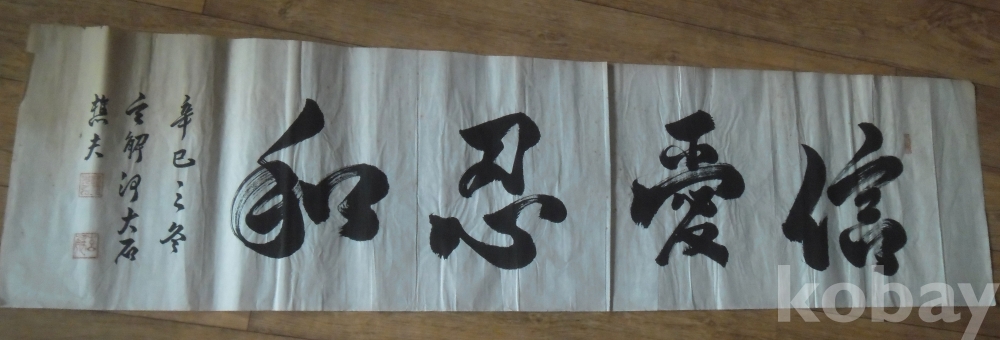 信愛忍和
辛巳之冬
大石
夫
kobay